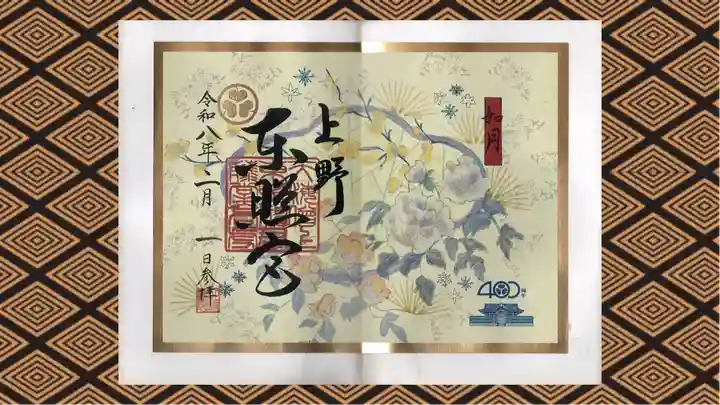 如月
上野
東照宮
令和八年二月一日参拝
400